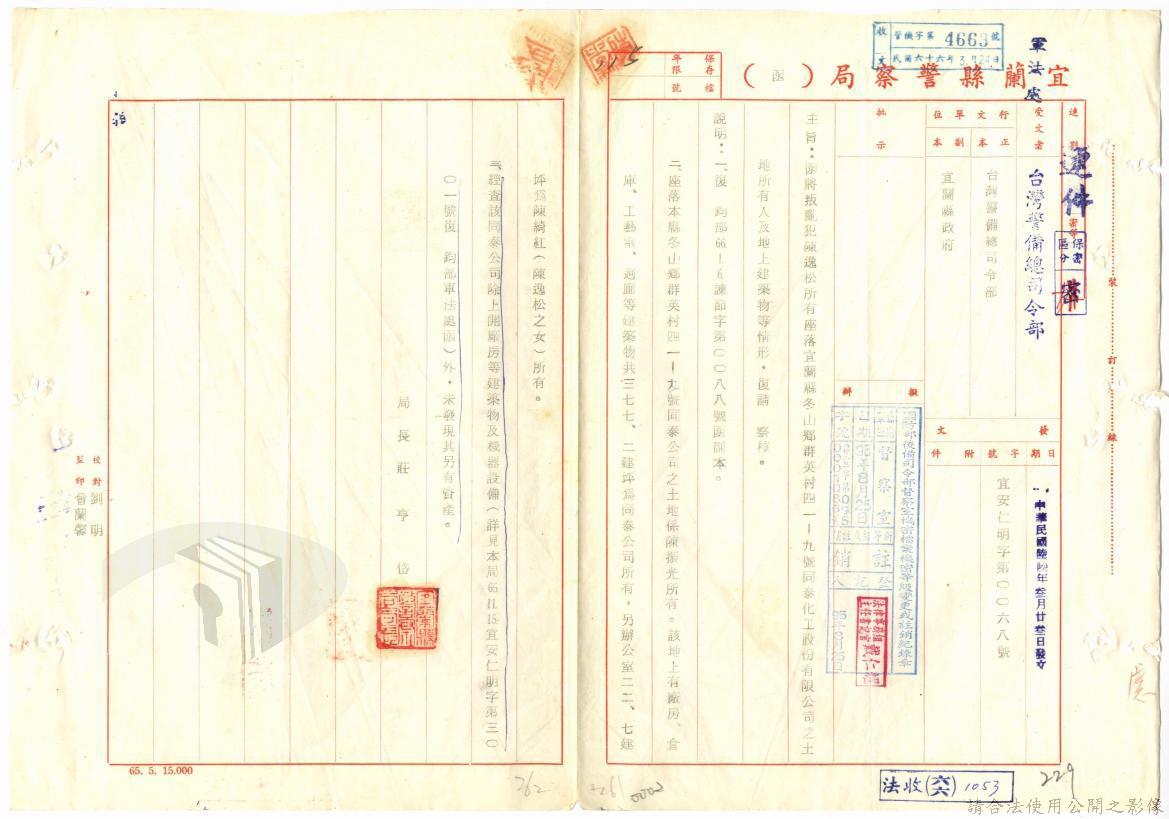 收文 警機字第4663號
民國六十六年3月24日
軍法處
宜蘭縣警察局（函）
保存年限
檔號
速別
速件
密等
保密區分
密
受文者
台灣警備總司令部
行文單位
正本
台灣警備總司令部
副本
宜蘭縣政府
發文
日期
中華民國陸陸年叁月廿叁日發文
字號
宜安仁明字第〇〇六八號
附件
批示
擬辦
國防部後備司令部督察室機密檔案機密等級變更或註銷紀錄章
督察室
95年8月25日
註銷
登記人
95年8月25日
主旨：函將叛亂犯陳逸松所有座落宜蘭縣冬山鄉群英村四一－九號同泰化工股份有限公司之土
地所有人及地上建築物等情形，復請 察核。
說明：一、復 鈞部66.1.6.諫節字第〇〇八八號函副本。
二、座落本縣冬山鄉群英村四一－九號同泰公司之土地係陳振光所有。該地上有廠房、倉
庫、工藝室、迴廊等建築物共三七七、二建坪為同泰公司所有，另辦公室二二、七建
坪為陳綺紅（陳逸松之女）所有。
三、經查該同泰公司除上開廠房等建築物及機器設備（詳見本局65.11.15.宜安仁明字第三〇
〇一號復 鈞部軍法處函）外，未發現其另有資產。
局長莊亨岱
校對 劉明
監印 曾蘭馨
裝
訂
線
65. 5. 15.000
262
261
0002
法收(六六)1053
229
請合法使用公開之影像